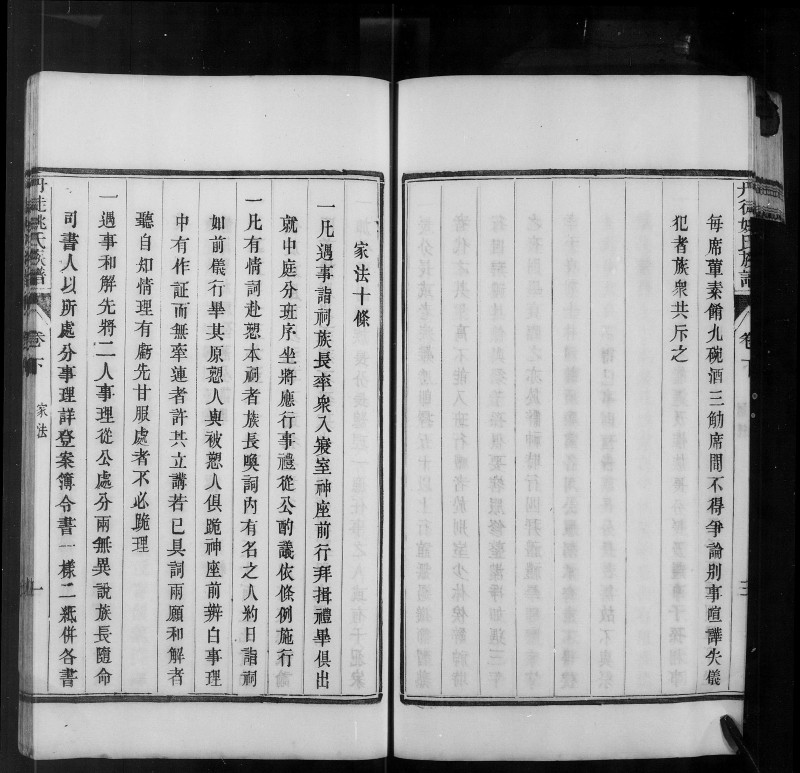 每席葷素餚九碗酒三觔席間不得爭論別事喧譁失儀
犯者族衆共斥之
三
家法十條
一凡遇事詣祠族長率衆入寢室神座前行拜揖禮畢俱出
就中庭分班序坐將應行事禮從公酌議依條例施行
一凡有情詞赴愬本祠者族長喚詞內有名之人約日詣祠
如前儀行畢其原愬人與被愬人俱跪神座前辨白事理
中有作証而無牽連者許其立講若已具詞兩願和解者
聽自知情理有虧先甘服處者不必跪理
一遇事和解先將二人事理從公處分兩無異說族長隨命
司書人以所處分事理詳登案簿令書一樣二紙併各書
丹徒姚氏族譜
卷下
家法
一